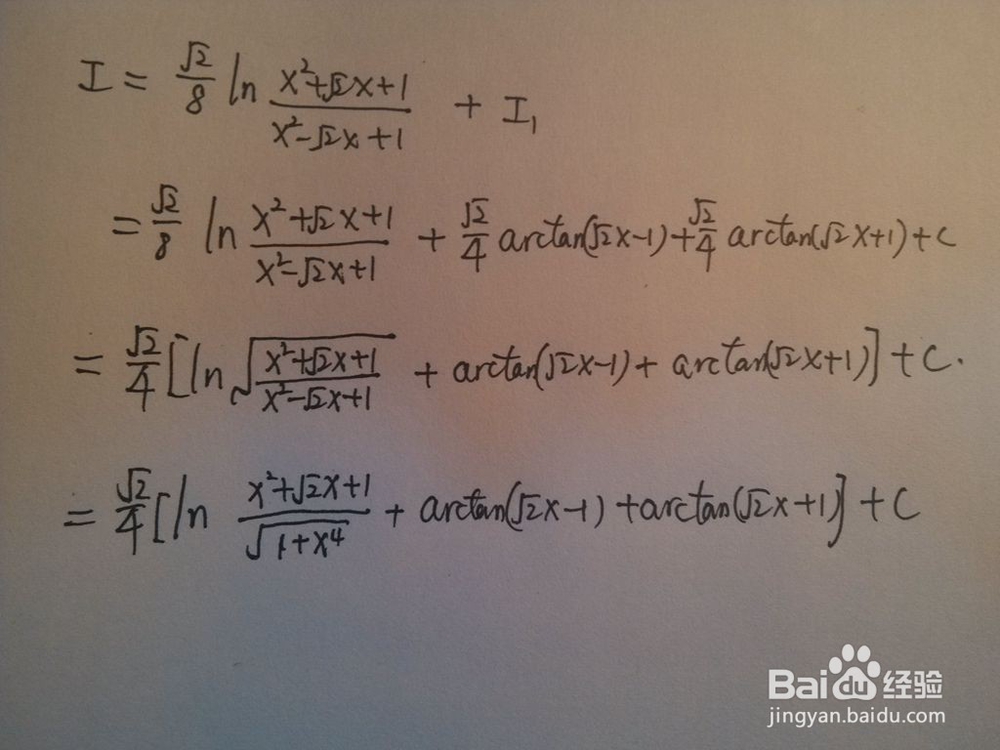 I = √2/8 ln (x²+√2x+1)/(x²-√2x+1) + I₁
= √2/8 ln (x²+√2x+1)/(x²-√2x+1) + √2/4 arctan(√2x-1) + √2/4 arctan(√2x+1) + C
= √2/4 [ln √((x²+√2x+1)/(x²-√2x+1)) + arctan(√2x-1) + arctan(√2x+1)] + C.
= √2/4 [ln (x²+√2x+1)/√(1+x⁴) + arctan(√2x-1) + arctan(√2x+1)] + C
Baidu 经验
jingyan.baidu.com